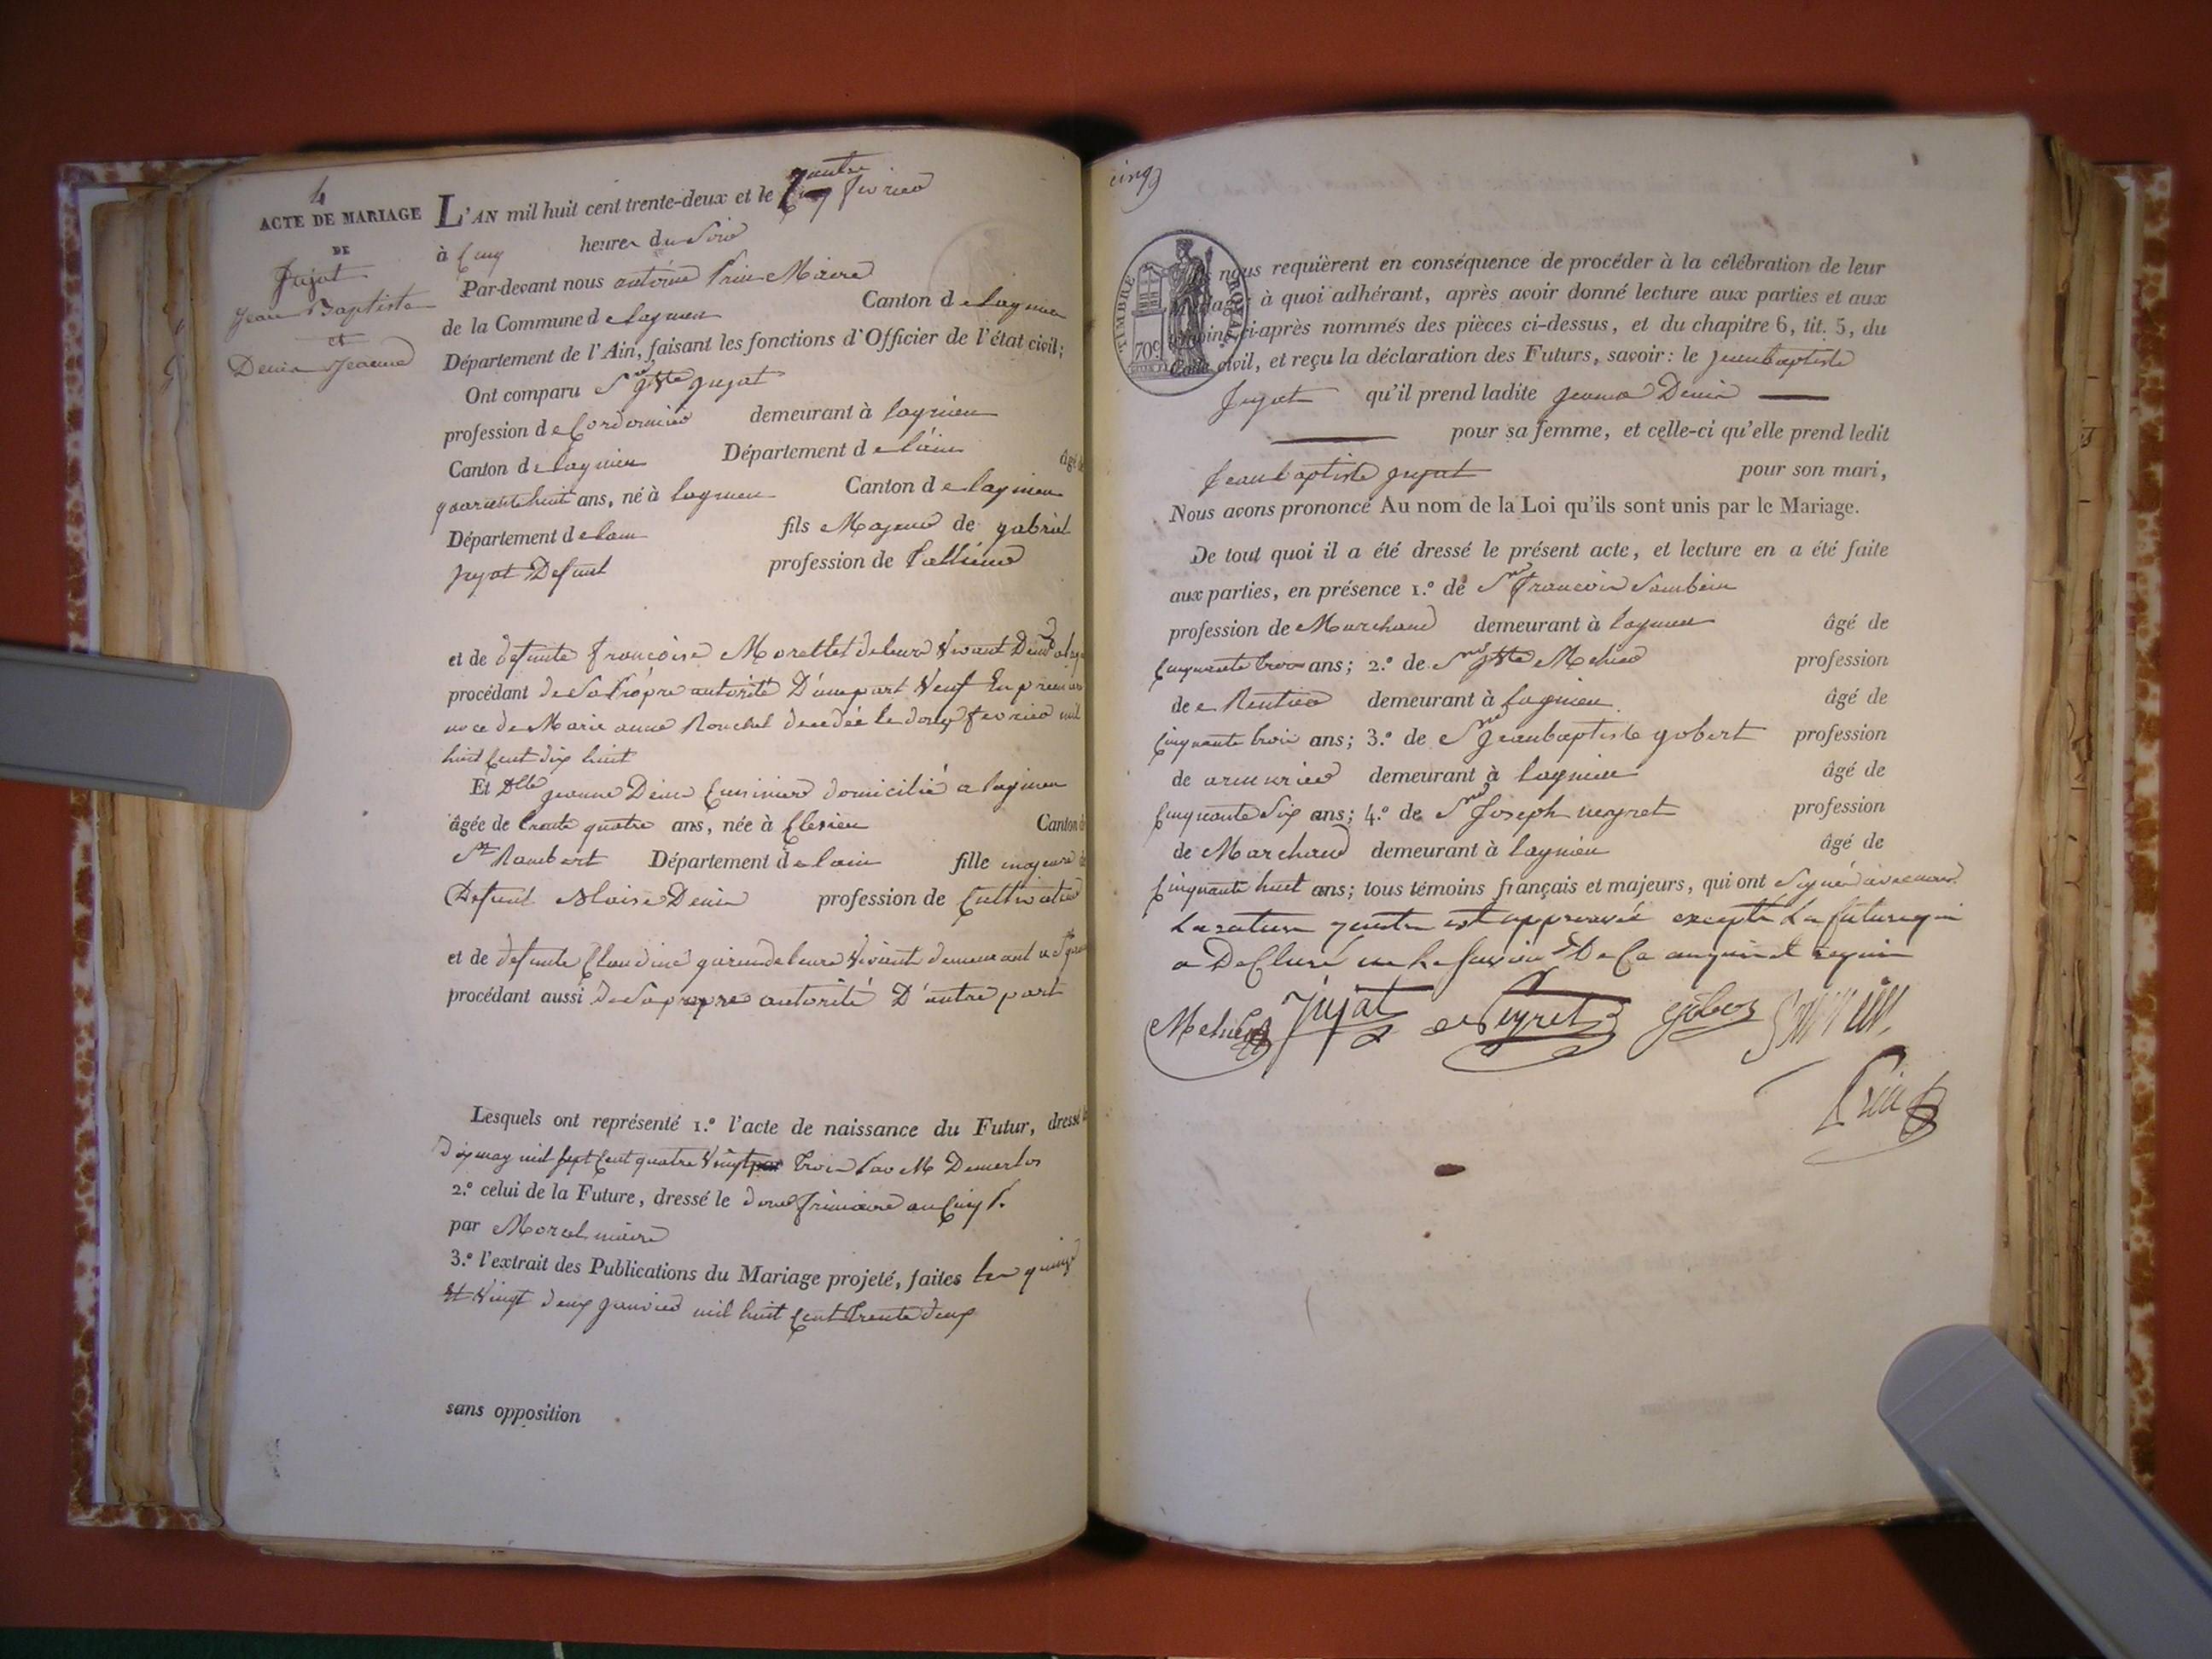 4
ACTE DE MARIAGE
DE
Jujat
Jean Baptiste
et
Denis Jeanne
L'AN mil huit cent trente-deux et le quatre fevrier
à Cinq heures du Soir
Par-devant nous antoine Prin Maire
de la Commune de lagnieu Canton de lagnieu
Département de l'Ain, faisant les fonctions d'Officier de l'état civil;
Ont comparu Sr Jn Bte Jujat
profession de Cordonnier demeurant à lagnieu
Canton de lagnieu Département de l'ain âgé de
quarante huit ans, né à lagnieu Canton de lagnieu
Département de lain fils Majeur de gabriel
Jujat Defunt profession de
et de defunte françoise Morettet de leurs Vivant
procédant de Sa Propre autorité D'une part Veuf En premiere
noce de Marie anne decedée le douze fevrier mil
huit Cent dix huit
Et Dlle jeanne Denis Cuisiniere domicilié a lagnieu
âgée de trente quatre ans, née à Clesieu Canton de
St Rambert Département de lain fille majeure de
Defunt Blaise Denis profession de Cultivateur
et de defunte Claudine de leurs Vivant demeurant
procédant aussi de Sa propre autorité D'autre part
Lesquels ont représenté 1.º l'acte de naissance du Futur, dressé le
Dix may mil Sept Cent quatre Vingt par trois Par M Demerlos
2.º celui de la Future, dressé le frimaire an Cinq
par Morel maire
3.º l'extrait des Publications du Mariage projeté, faites les quinze
Et Vingt deux janvier mil huit Cent Trente deux
sans opposition
cinq
TIMBRE ROYAL
70 c.
Ils nous requièrent en conséquence de procéder à la célébration de leur
Mariage; à quoi adhérant, après avoir donné lecture aux parties et aux
témoins ci-après nommés des pièces ci-dessus, et du chapitre 6, tit. 5, du
Code civil, et reçu la déclaration des Futurs, savoir: le jeanbaptiste
Jujat qu'il prend ladite jeanne Denis
pour sa femme, et celle-ci qu'elle prend ledit
Jeanbaptiste jujat pour son mari,
Nous avons prononcé Au nom de la Loi qu'ils sont unis par le Mariage.
De tout quoi il a été dressé le présent acte, et lecture en a été faite
aux parties, en présence 1.º de Sr François
profession de Marchand demeurant à lagnieu âgé de
Cinquante trois ans; 2.º de Sr Jn Bte Mehier profession
de Rentier demeurant à lagnieu âgé de
Cinquante trois ans; 3.º de Sr jeanbaptiste gobert profession
de armurier demeurant à lagnieu âgé de
Cinquante Six ans; 4.º de Sr Joseph neyret profession
de Marchand demeurant à lagnieu âgé de
Cinquante huit ans; tous témoins français et majeurs, qui ont Signé avec nous
La rature quatre est approuvée excepté La future qui
a Declaré ne le Savoir De Ce enquis et requis
Mehier Jujat Neyret
Prin